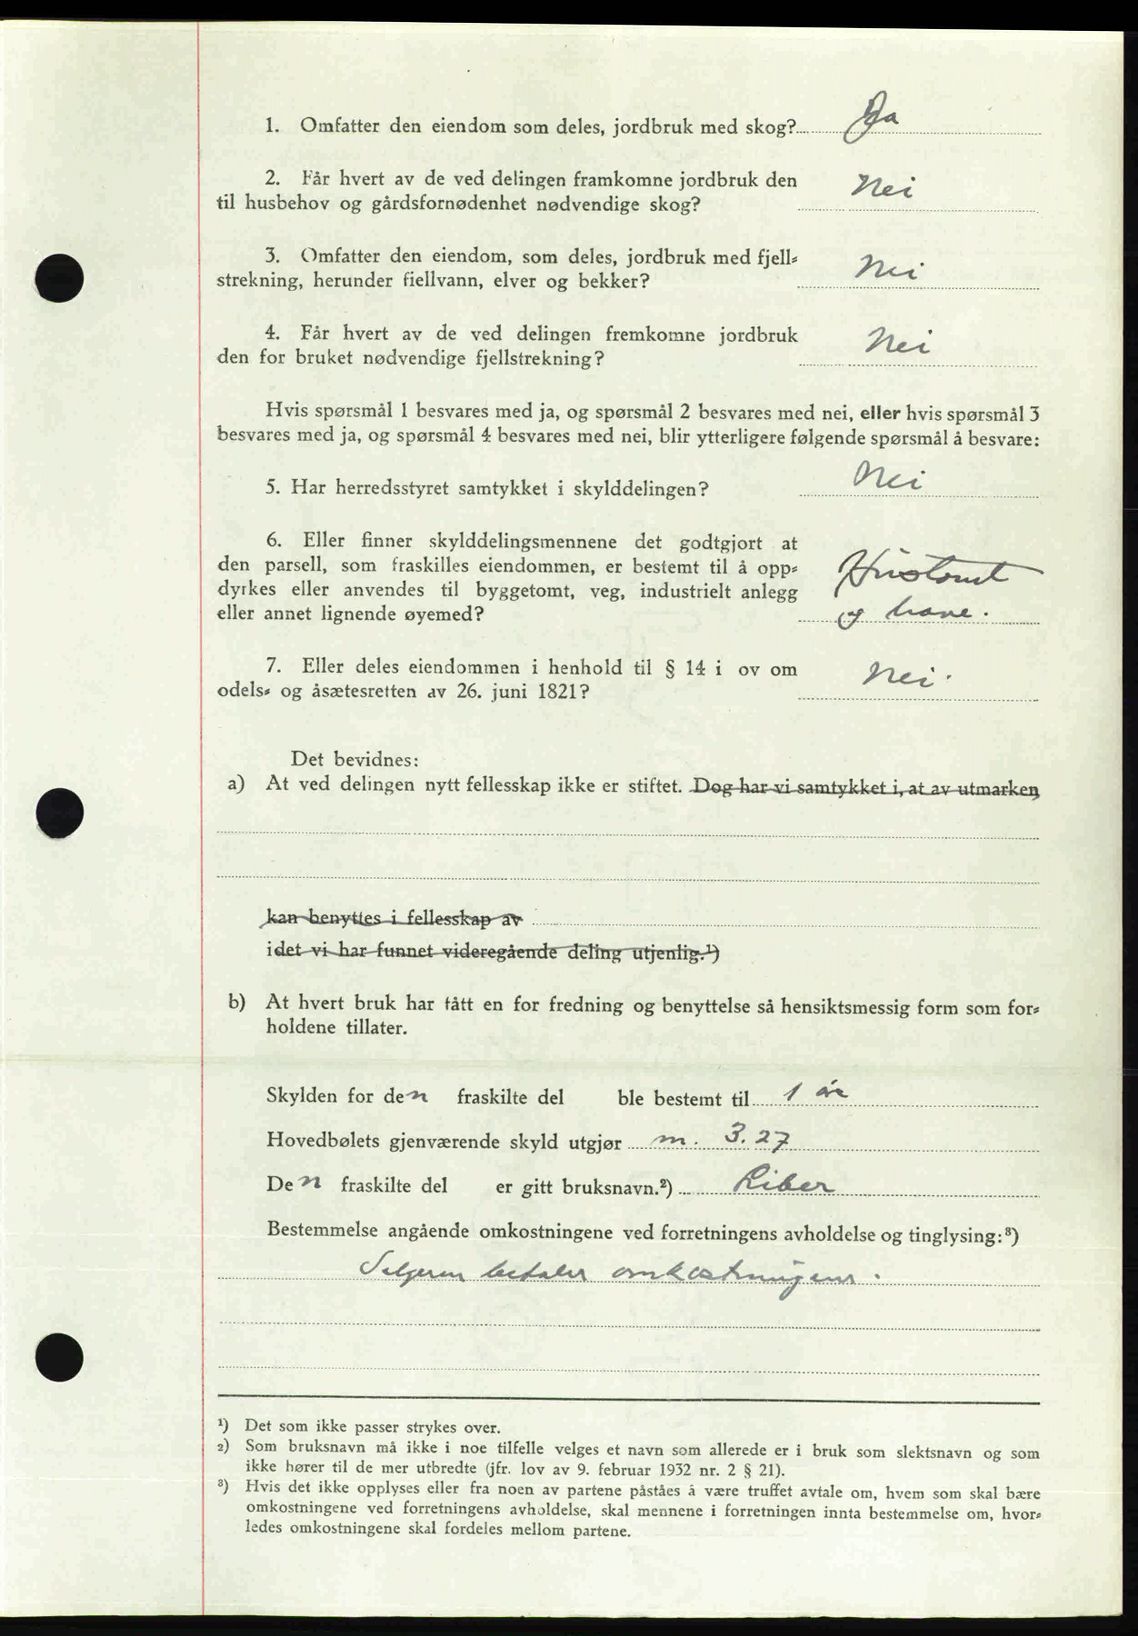 1. Omfatter den eiendom som deles, jordbruk med skog? Ja
2. Får hvert av de ved delingen framkomne jordbruk den
til husbehov og gårdsfornødenhet nødvendige skog? Nei
3. Omfatter den eiendom, som deles, jordbruk med fjell=
strekning, herunder fiellvann, elver og bekker? Nei
4. Får hvert av de ved delingen fremkomne jordbruk
den for bruket nødvendige fjellstrekning? Nei
Hvis spørsmål 1 besvares med ja, og spørsmål 2 besvares med nei, eller hvis spørsmål 3
besvares med ja, og spørsmål 4 besvares med nei, blir ytterligere følgende spørsmål å besvare:
5. Har herredsstyret samtykket i skylddelingen? Nei
6. Eller finner skylddelingsmennene det godtgjort at
den parsell, som fraskilles eiendommen, er bestemt til å opp=
dyrkes eller anvendes til byggetomt, veg, industrielt anlegg Hustomt
eller annet lignende øyemed? og have.
7. Eller deles eiendommen i henhold til § 14 i ov om
odels= og åsætesretten av 26. juni 1821? Nei.
Det bevidnes:
a) At ved delingen nytt fellesskap ikke er stiftet. Dog har vi samtykket i, at av utmarken
kan benyttes i fellesskap av
idet vi har funnet videregående deling utjenlig.¹)
b) At hvert bruk har fått en for fredning og benyttelse så hensiktsmessig form som for=
holdene tillater.
Skylden for den fraskilte del ble bestemt til 1 øre
Hovedbølets gjenværende skyld utgjør m. 3.27
Den fraskilte del er gitt bruksnavn.²) Liber
Bestemmelse angående omkostningene ved forretningens avholdelse og tinglysing:³)
Selgeren betaler omkostningene.
¹) Det som ikke passer strykes over.
²) Som bruksnavn må ikke i noe tilfelle velges et navn som allerede er i bruk som slektsnavn og som
ikke hører til de mer utbredte (jfr. lov av 9. februar 1932 nr. 2 § 21).
³) Hvis det ikke opplyses eller fra noen av partene påståes å være truffet avtale om, hvem som skal bære
omkostningene ved forretningens avholdelse, skal mennene i forretningen innta bestemmelse om, hvor=
ledes omkostningene skal fordeles mellom partene.